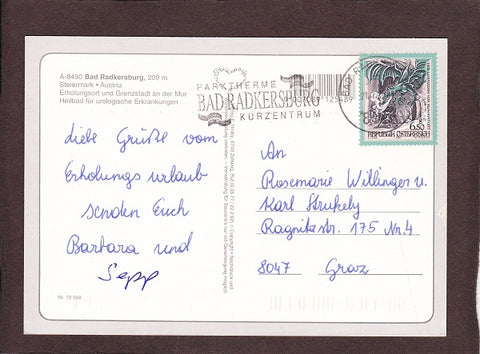 A-8490 Bad Radkersburg, 209 m
Steiermark • Austria
Erholungsort und Grenzstadt an der Mur
Heilbad für urologische Erkrankungen
PARKTHERME
BAD RADKERSBURG
KURZENTRUM
6.50
REPUBLIK ÖSTERREICH
liebe Grüße vom
Erholungsurlaub
senden Euch
Barbara und
Sepp
An
Rosemarie Willinger u.
Karl Strukely
Ragnitzstr. 175 Nr. 4
8047 Graz